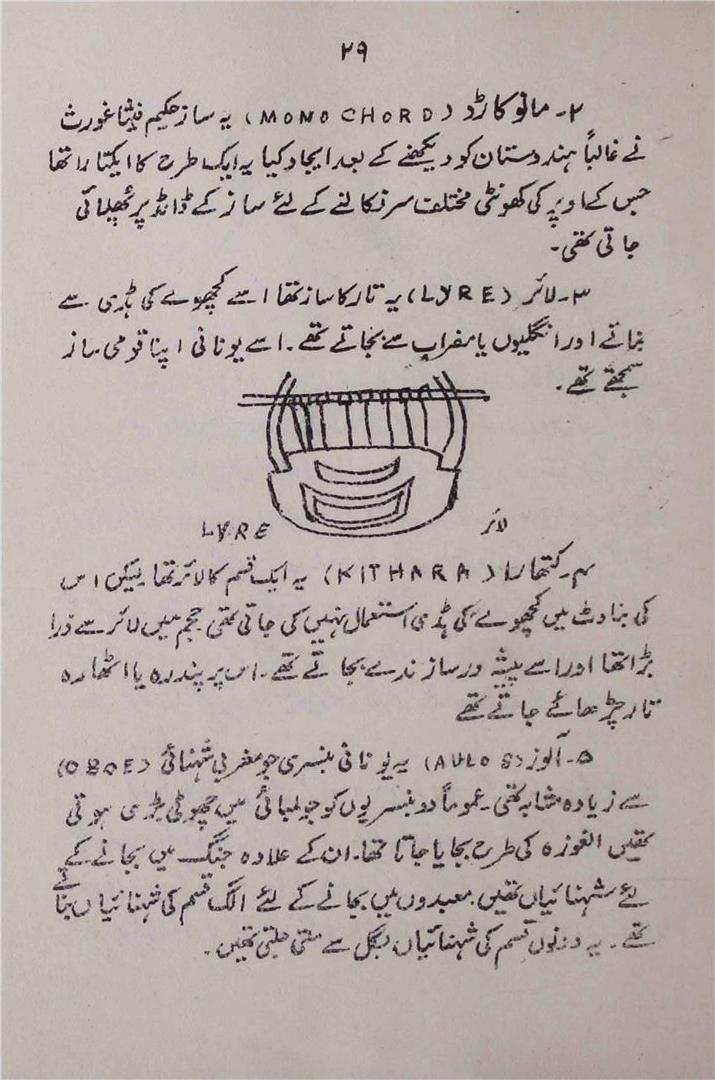 ۲۹
۲۔ مانو کارڈ (MONO CHORD) یہ ساز حکیم فیثاغورث
نے غالباً ہندوستان کو دیکھنے کے بعد ایجاد کیا یہ ایک طرح کا ایکتارا تھا
جس کے اوپر کی کھونٹی مختلف سر نکالنے کے لئے ساز کے ڈانڈ پر پھیلائی
جاتی تھی۔
۳۔ لائر (LYRE) یہ تار کا ساز تھا اسے کچھوے کی ہڈی سے
بناتے اور انگلیوں یا مضراب سے بجاتے تھے۔ اسے یونانی اپنا قومی ساز
سمجھتے تھے۔
LYRE لائر
۴۔ کتھارا (KITHARA) یہ ایک قسم کا لائر تھا لیکن اس
کی بناوٹ میں کچھوے کی ہڈی استعمال نہیں کی جاتی تھی حجم میں لائر سے ذرا
بڑا تھا اور اسے پیشہ ور سازندے بجاتے تھے۔ اس پر پندرہ یا اٹھارہ
تار چڑھائے جاتے تھے
۵۔ آلوز (AULOS) یہ یونانی بنسری جو مغربی شہنائی (OBOE)
سے زیادہ مشابہ تھی۔ عموماً دو بنسریوں کو جو لمبائی میں چھوٹی بڑی ہوتی
تھیں الغوزہ کی طرح بجایا جاتا تھا۔ ان کے علاوہ جنگ میں بجانے کے
لئے شہنائیاں تھیں۔ معبدوں میں بجانے کے لئے الگ قسم کی شہنائیاں بناتے
تھے۔ یہ دونوں قسم کی شہنائیاں بگل سے ملتی جلتی تھیں۔